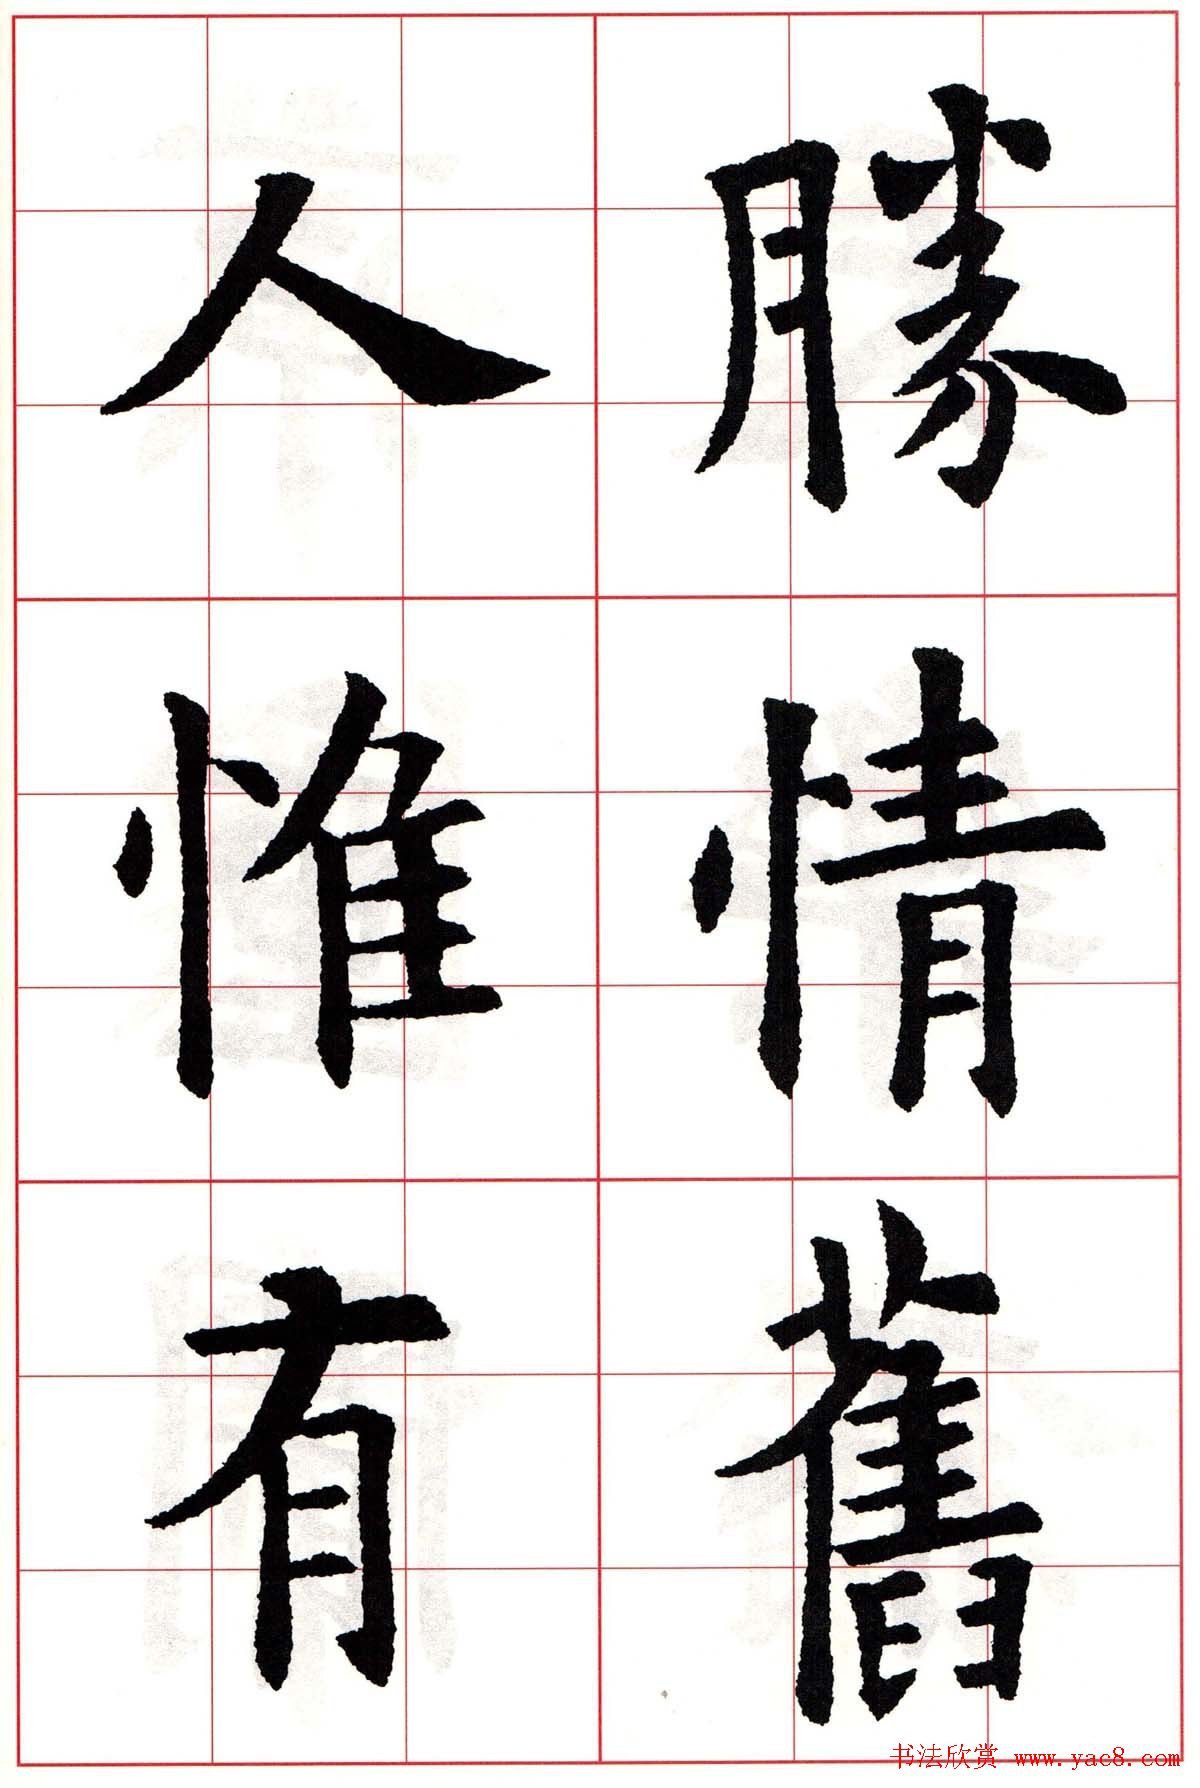 勝情舊
人惟有
书法欣赏 www.yac8.com